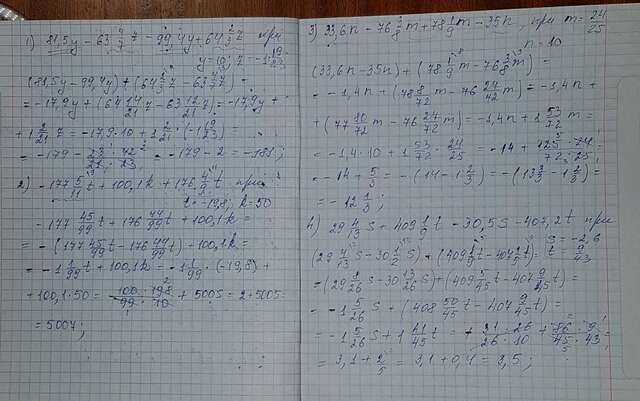 1) 81,5y - 63 4/7 z - 99,4y + 64 2/3 z при
y=10; z=-1 19/23
(81,5y - 99,4y) + (64 2/3 z - 63 4/7 z) =
= -17,9y + (64 14/21 z - 63 12/21 z) = -17,9y +
+ 1 2/21 z = -17,9·10 + 1 2/21 · (-1 19/23) =
= -179 - 23·42/21·23 = -179 - 2 = -181;
2) -177 5/11 t + 100,1k + 176 4/9 t при
t=-19,8; k=50
-177 45/99 t + 176 44/99 t + 100,1k =
= -(177 45/99 t - 176 44/99 t) - 100,1k =
= -1 1/99 t + 100,1k = -1 1/99 · (-19,8) +
+ 100,1·50 = 100·198/99·10 + 5005 = 2+5005=
= 5007;
3) 33,6n - 76 3/8 m + 78 1/9 m - 35n, при m = 24/25
n=10
(33,6n - 35n) + (78 1/9 m - 76 3/8 m) =
= -1,4n + (78 8/72 m - 76 27/72 m) = -1,4n +
+ (77 80/72 m - 76 27/72 m) = -1,4n + 1 53/72 m =
= -1,4·10 + 1 53/72 · 24/25 = -14 + 125·24/72·25 =
= -14 + 5/3 = -(14 - 1 2/3) = -(13 3/3 - 1 2/3) =
= -12 1/3;
4) 29 4/13 s + 409 1/9 t - 30,5s - 407,2t при
s=-2,6
(29 4/13 s - 30 1/2 s) + (409 1/9 t - 407 1/5 t) = t = 9/43
=(29 8/26 s - 30 13/26 s) + (409 5/45 t - 407 9/45 t) =
= -1 5/26 s + (408 50/45 t - 407 9/45 t) =
= -1 5/26 s + 1 41/45 t = + 31·26/26·10 + 86·9/45·43 =
= 3,1 + 2/5 = 3,1 + 0,4 = 3,5;